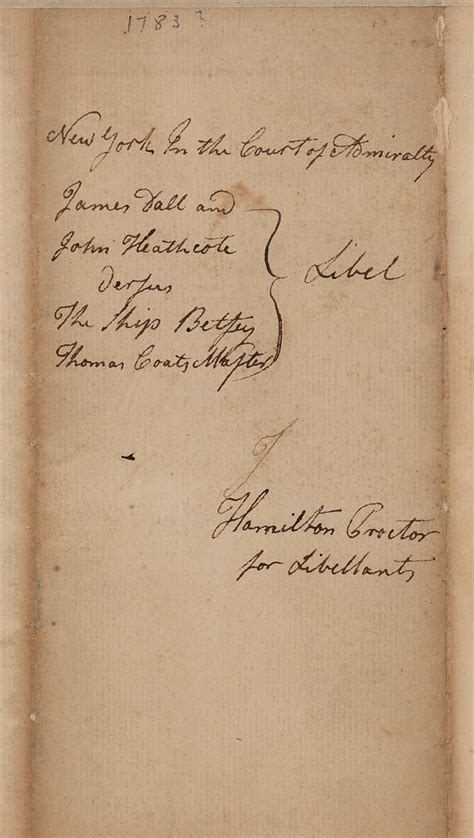 1783?
New York In the Court of Admiralty
James Dall and
John Heathcote
versus
The Ship Betsey
Thomas Coats Master
Libel
Hamilton Proctor
for Libellants